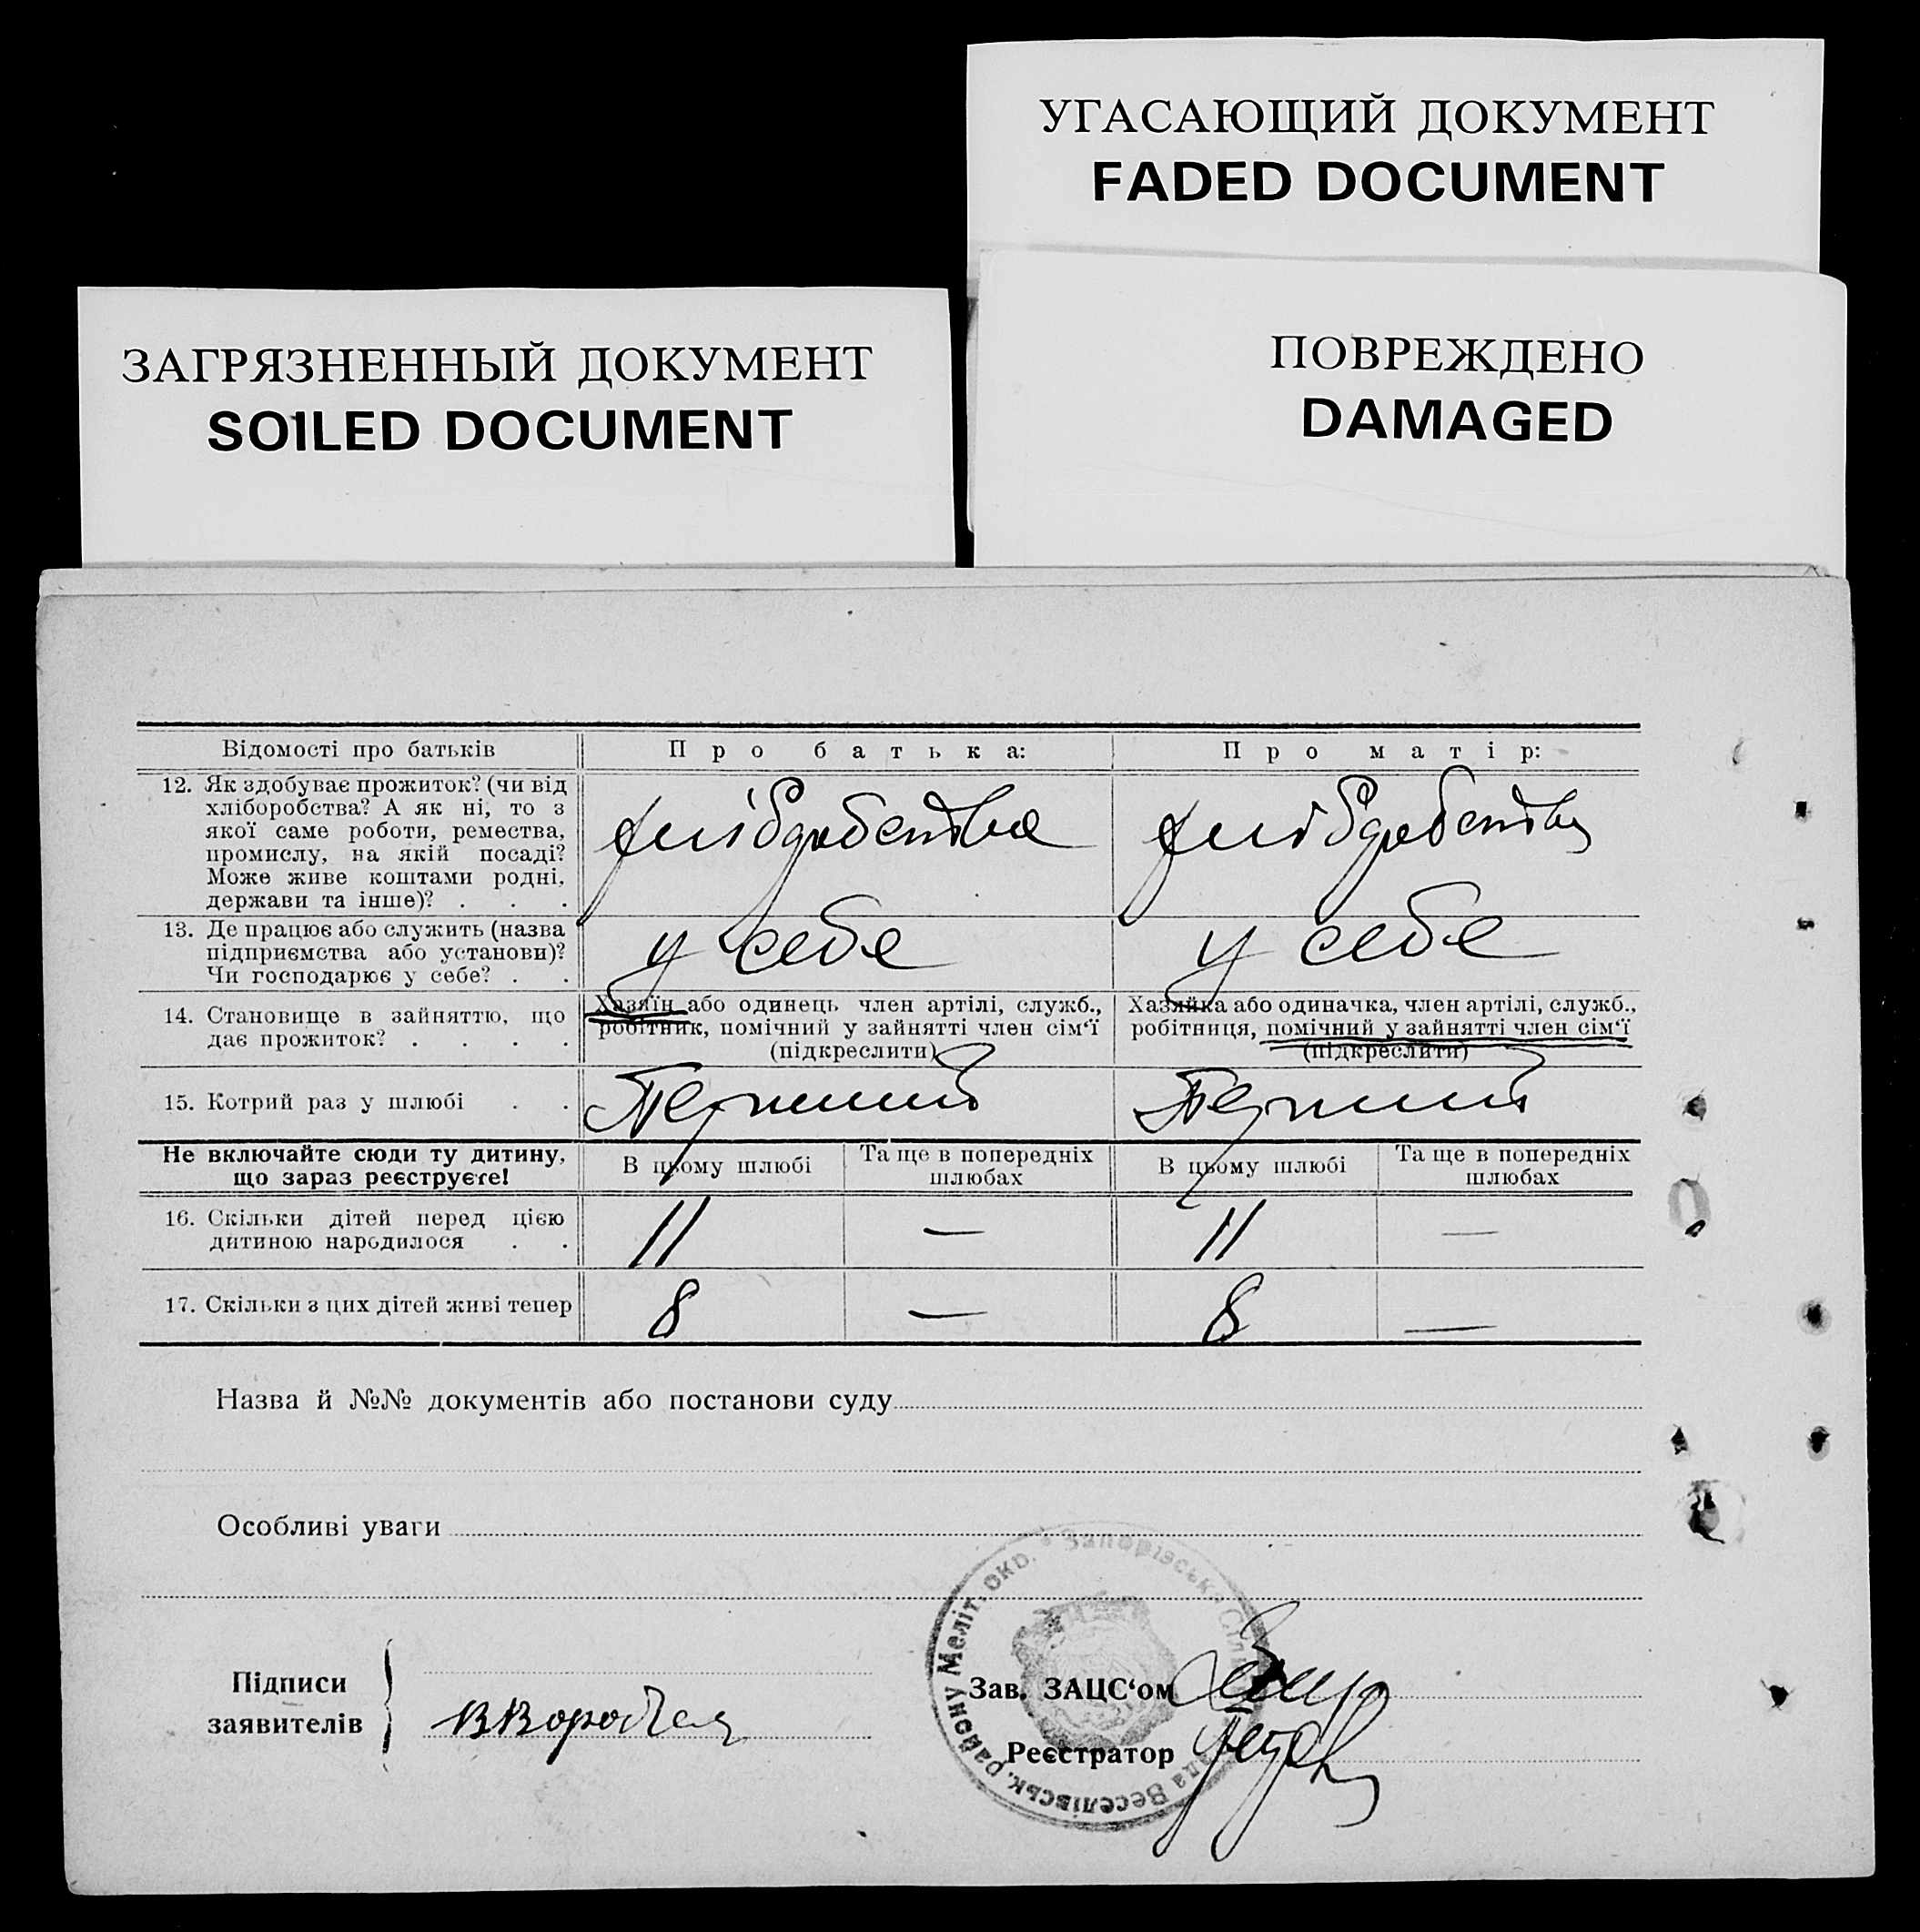 УГАСАЮЩИЙ ДОКУМЕНТ
FADED DOCUMENT
ЗАГРЯЗНЕННЫЙ ДОКУМЕНТ
SOILED DOCUMENT
ПОВРЕЖДЕНО
DAMAGED
Відомості про батьків
Про батька:
Про матір:
12. Як здобуває прожиток? (чи від
хліборобства? А як ні, то з
якої саме роботи, ремества,
промислу, на якій посаді?
Може живе коштами родні,
держави та інше)? . . .
хліборобства
хліборобства
13. Де працює або служить (назва
підприємства або установи)?
Чи господарює у себе? . .
у себе
у себе
14. Становище в зайняттю, що
дає прожиток? . . . .
Хазяїн або одинець член артілі, служб.,
робітник, помічний у зайнятті член сім‘ї
(підкреслити)
Хазяйка або одиначка, член артілі, служб.,
робітниця, помічний у зайнятті член сім‘ї
(підкреслити)
15. Котрий раз у шлюбі . .
Перший
Перший
Не включайте сюди ту дитину,
що зараз реєструєте!
В цьому шлюбі
Та ще в попередніх
шлюбах
В цьому шлюбі
Та ще в попередніх
шлюбах
16. Скільки дітей перед цією
дитиною народилося . .
11 — 11 —
17. Скільки з цих дітей живі тепер
8 — 8 —
Назва й №№ документів або постанови суду
Особливі уваги
Підписи
заявителів
Зав. ЗАЦС‘ом
Реєстратор
Запорізська Сільрада Веселівськ. району Меліт. окр.